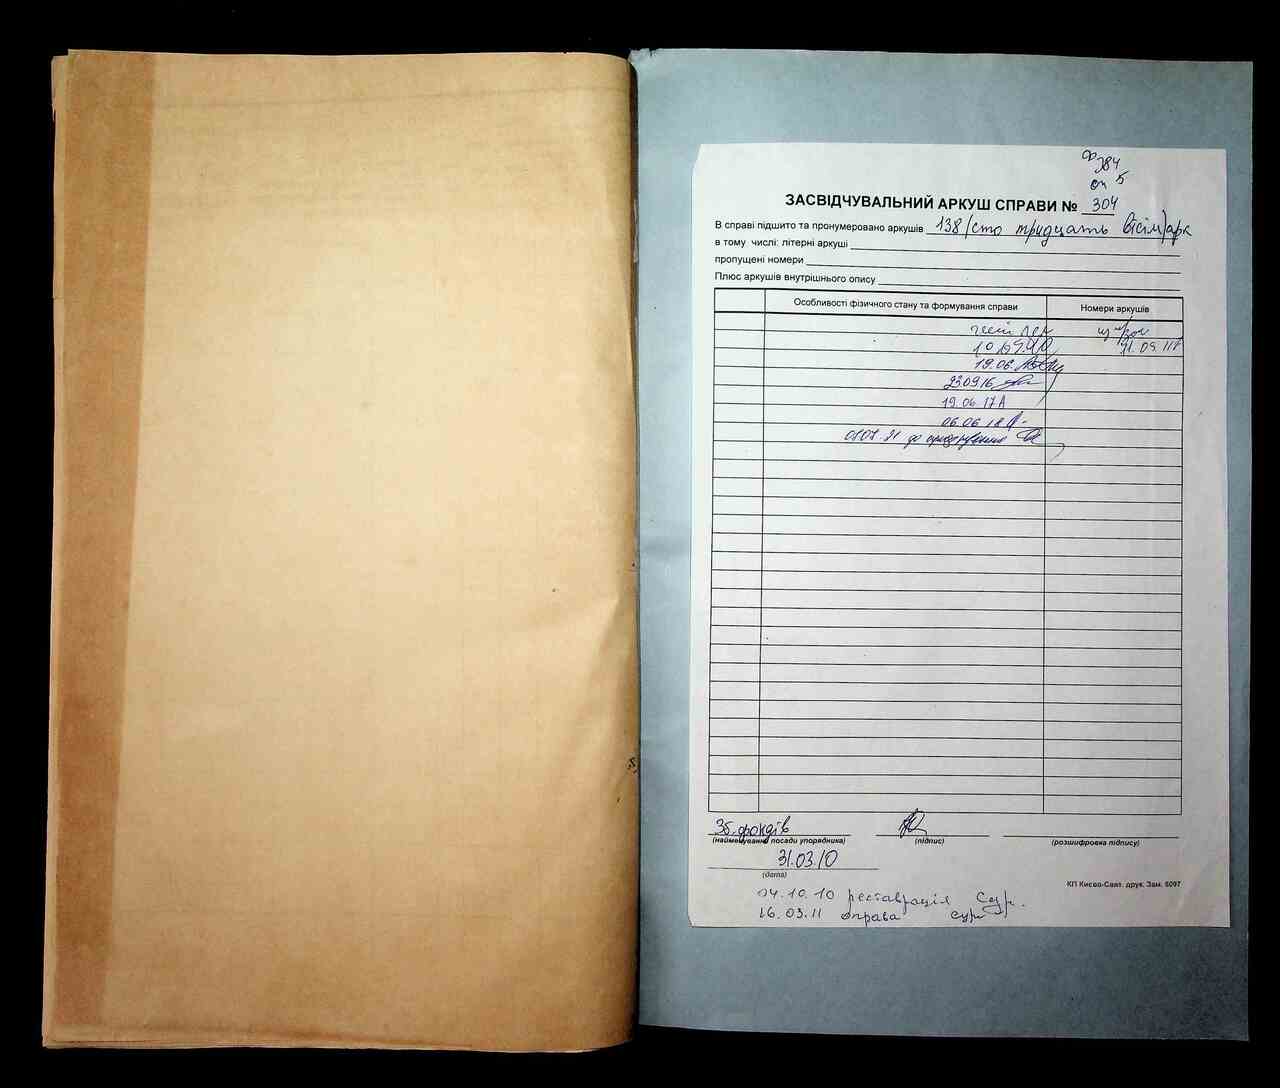 ф 784
оп 5
ЗАСВІДЧУВАЛЬНИЙ АРКУШ СПРАВИ № 304
В справі підшито та пронумеровано аркушів 138 (сто тридцать вісім) арк
в тому числі: літерні аркуші
пропущені номери
Плюс аркушів внутрішнього опису
Особливості фізичного стану та формування справи Номери аркушів
19.06.
23.09.16
19.06 17
06.06 18
до
Зб. фондів
(найменування посади упорядника) (підпис) (розшифровка підпису)
31.03.10
(дата)
КП Києво-Свят. друк. Зам. 6097
04.10.10 реставрація Сур.
16.03.11 оправа сур